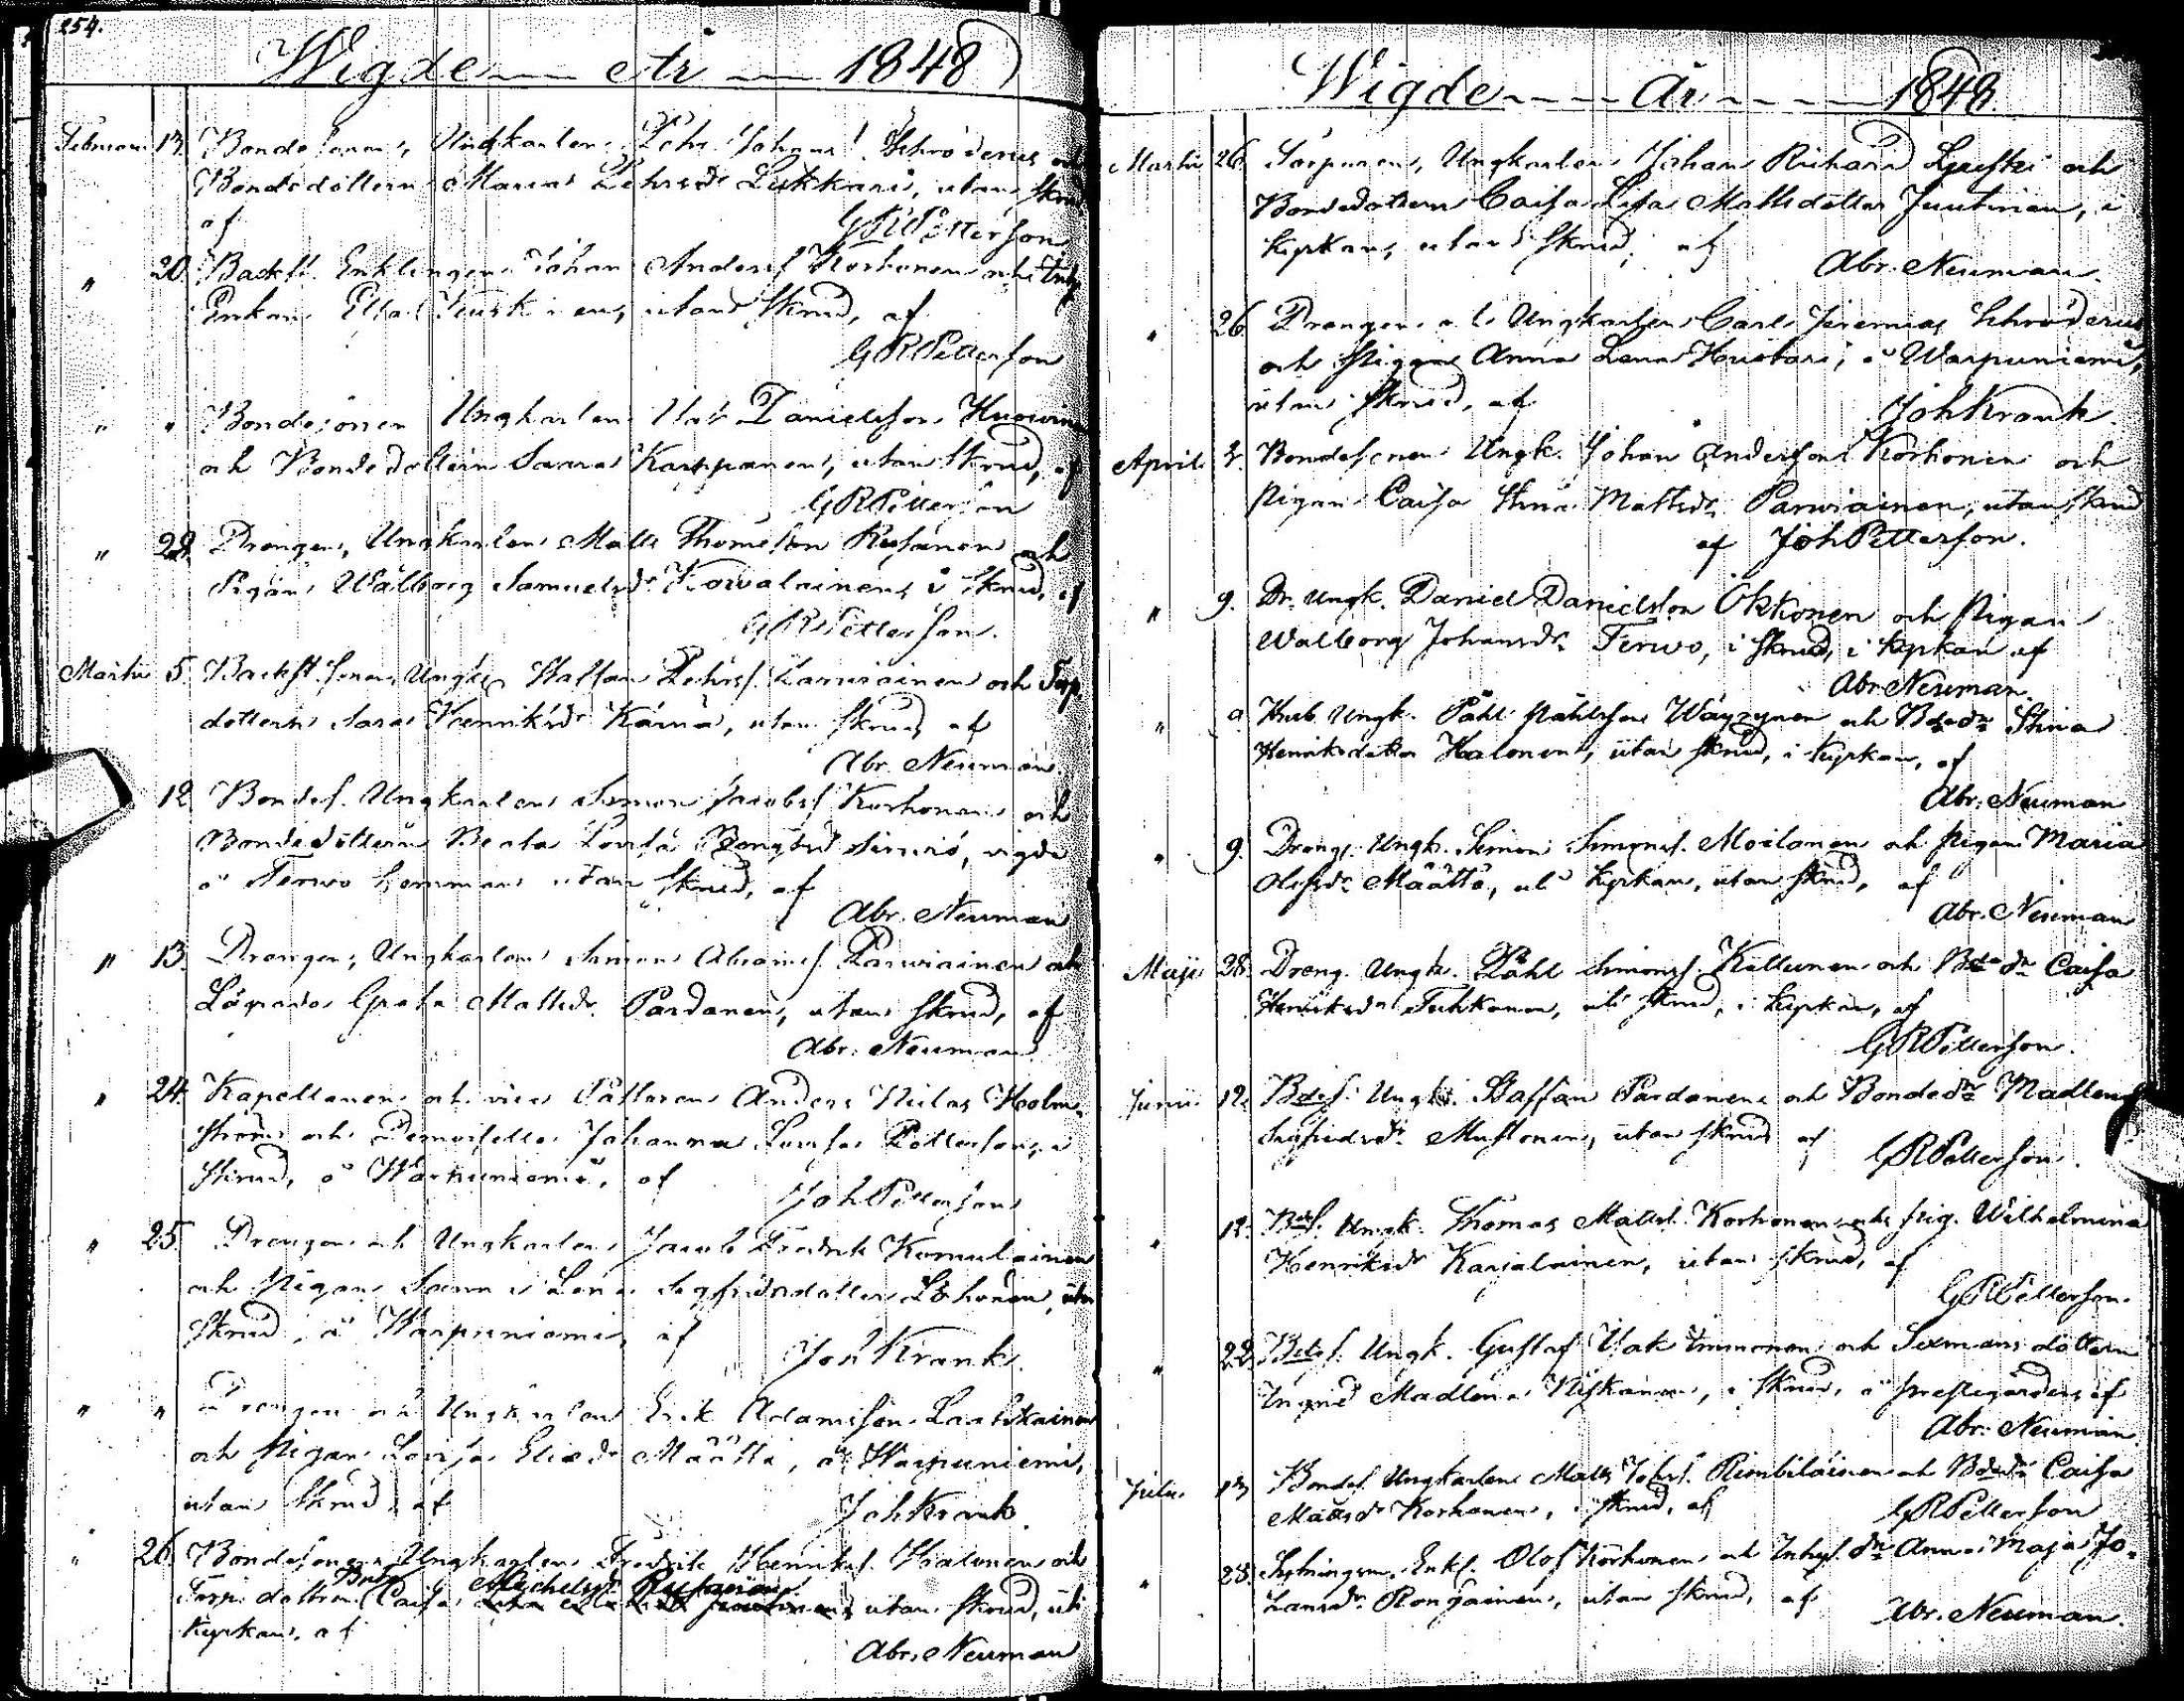 254.
Wigde År 1848
Februari 13. Bondesonen, Ungkarlen Pehr Johans. Schroderus och
Bondedottern Maria Pehrsdr Leskkari, utan skrud
af
GRPetterson
" 20. Backst. Enklingen Johan Anders. Korhonen och Inh.
Enkan Elsa, utan skrud, af
GRPetterson
" " Bondesonen Ungkarlen Danielsson
och Bondedottern Saara Karppanen, utan skrud, af
GRPetterson
" Drengen, Ungkarlen Matts Thomeson Rusanen och
Pigan Walborg Samuelsdr Kowalainen, i skrud, af
GRPetterson.
Martii 5. Backst. sonen, Ungk. Staffan Pehrss. Karwinen och Torp
dottern Sara Henriksdr Kärnä, utan skrud, af
Abr. Neuman.
12. Bondes. Ungkarlen Simon Jacobss Korhonen och
Bondedottern Beata Lovisa Bengtsdr, vigde
å Terwo hemman utan skrud, af
Abr. Neuman
" 13. Drengen, Ungkarlen Simon Abrams. Parwiainen och
Greta Mattsdr. Pardanen, utan skrud, af
Abr. Neuman
" 24. Kapellanen och vice Pastoren Anders Niclas Holm-
ström och Demoiselle Johanna Lovisa Petterson, i
skrud, å Warpuniemi, af
JohPetterson
" 25. Drengen och Ungkarlen Jacob Fredrik Komulainen
och Pigan Sanna Lena Segfridsdotter, utan
skrud, å Warpuniemi, af
Joh Krank.
" " Drengen och Ungkarlen Erik Adamsson Laatikainen
och Pigan Lovisa Eliædr Määttä, å Warpuniemi,
utan skrud, af
Joh Krank.
" 26. Bondesonen, Ungkarlen Fredrik Henriks. Halonen och
Torp. dottern Caisa Michelsdr Rusanen, utan skrud, uti
Kyrkan, af
Abr. Neuman
Wigde År 1848.
Martii 26. Torparen, Ungkarlen Johan Richard och
Bondedottern Caisa Lisa Mattsdotter Juntinen, i
Kyrkan, utan skrud, af
Abr. Neuman.
" 26. Drengen och Ungkarlen Carl Jeremias Schroderus
och Pigan Anna Lena, å Warpuniemi,
utan skrud, af
Joh Krank.
April Bondesonen Ungk. Johan Andersson Korhonen och
Pigan Caisa Stina Mattsdr Parwiainen, utan skrud
af JohPetterson.
" 9. Dr. Ungk. Daniel Danielsson Okkonen och Pigan
Walborg Johansdr Terwo, i skrud, i kyrkan af
Abr Neuman.
" 9. Ungk. Påhl Påhlsson Wäyrynen och Bdedr Stina
Henriksdotter Halonen, utan skrud, i kyrkan, af
Abr. Neuman
" 9. Dreng. Ungk. Simon Simons. Moilanen och Pigan Maria
Olofsdr Määttä, uti Kyrkan, utan skrud, af
Abr. Neuman
Maji 28. Dreng. Ungk. Påhl Simons. Kellunen och Bdedr Caisa
Henriksdr, utan skrud, i kyrkan, af
GRPetterson.
Junii 12. Bdes. Ungk. Staffan Pardanen och Bondedr Madlena
Sigfridsdr Mustonen, utan skrud af
GRPetterson.
" 12. Bdes. Ungk. Thomas Mattss. Korhonen och pig. Wilhelmina
Henriksdr Karjalainen, utan skrud, af
GRPetterson.
" 22. Bdes. Ungk. Gustaf Isak Immonen och Sexmans dottern
Ingrid Madlena Niskanen, i skrud, å prestegården, af
Abr. Neuman.
Julii 13 Bondes. Ungkarlen Matts Johss. Rimbiläinen och Bdedr Caisa
Mattsdr Korhonen, i skrud, af
GRPetterson
" 25. Enkl. Olof Korhonen och Inhys. dr Anna Maja Jo-
hansdr Rongainen, utan skrud, af
Abr. Neuman.